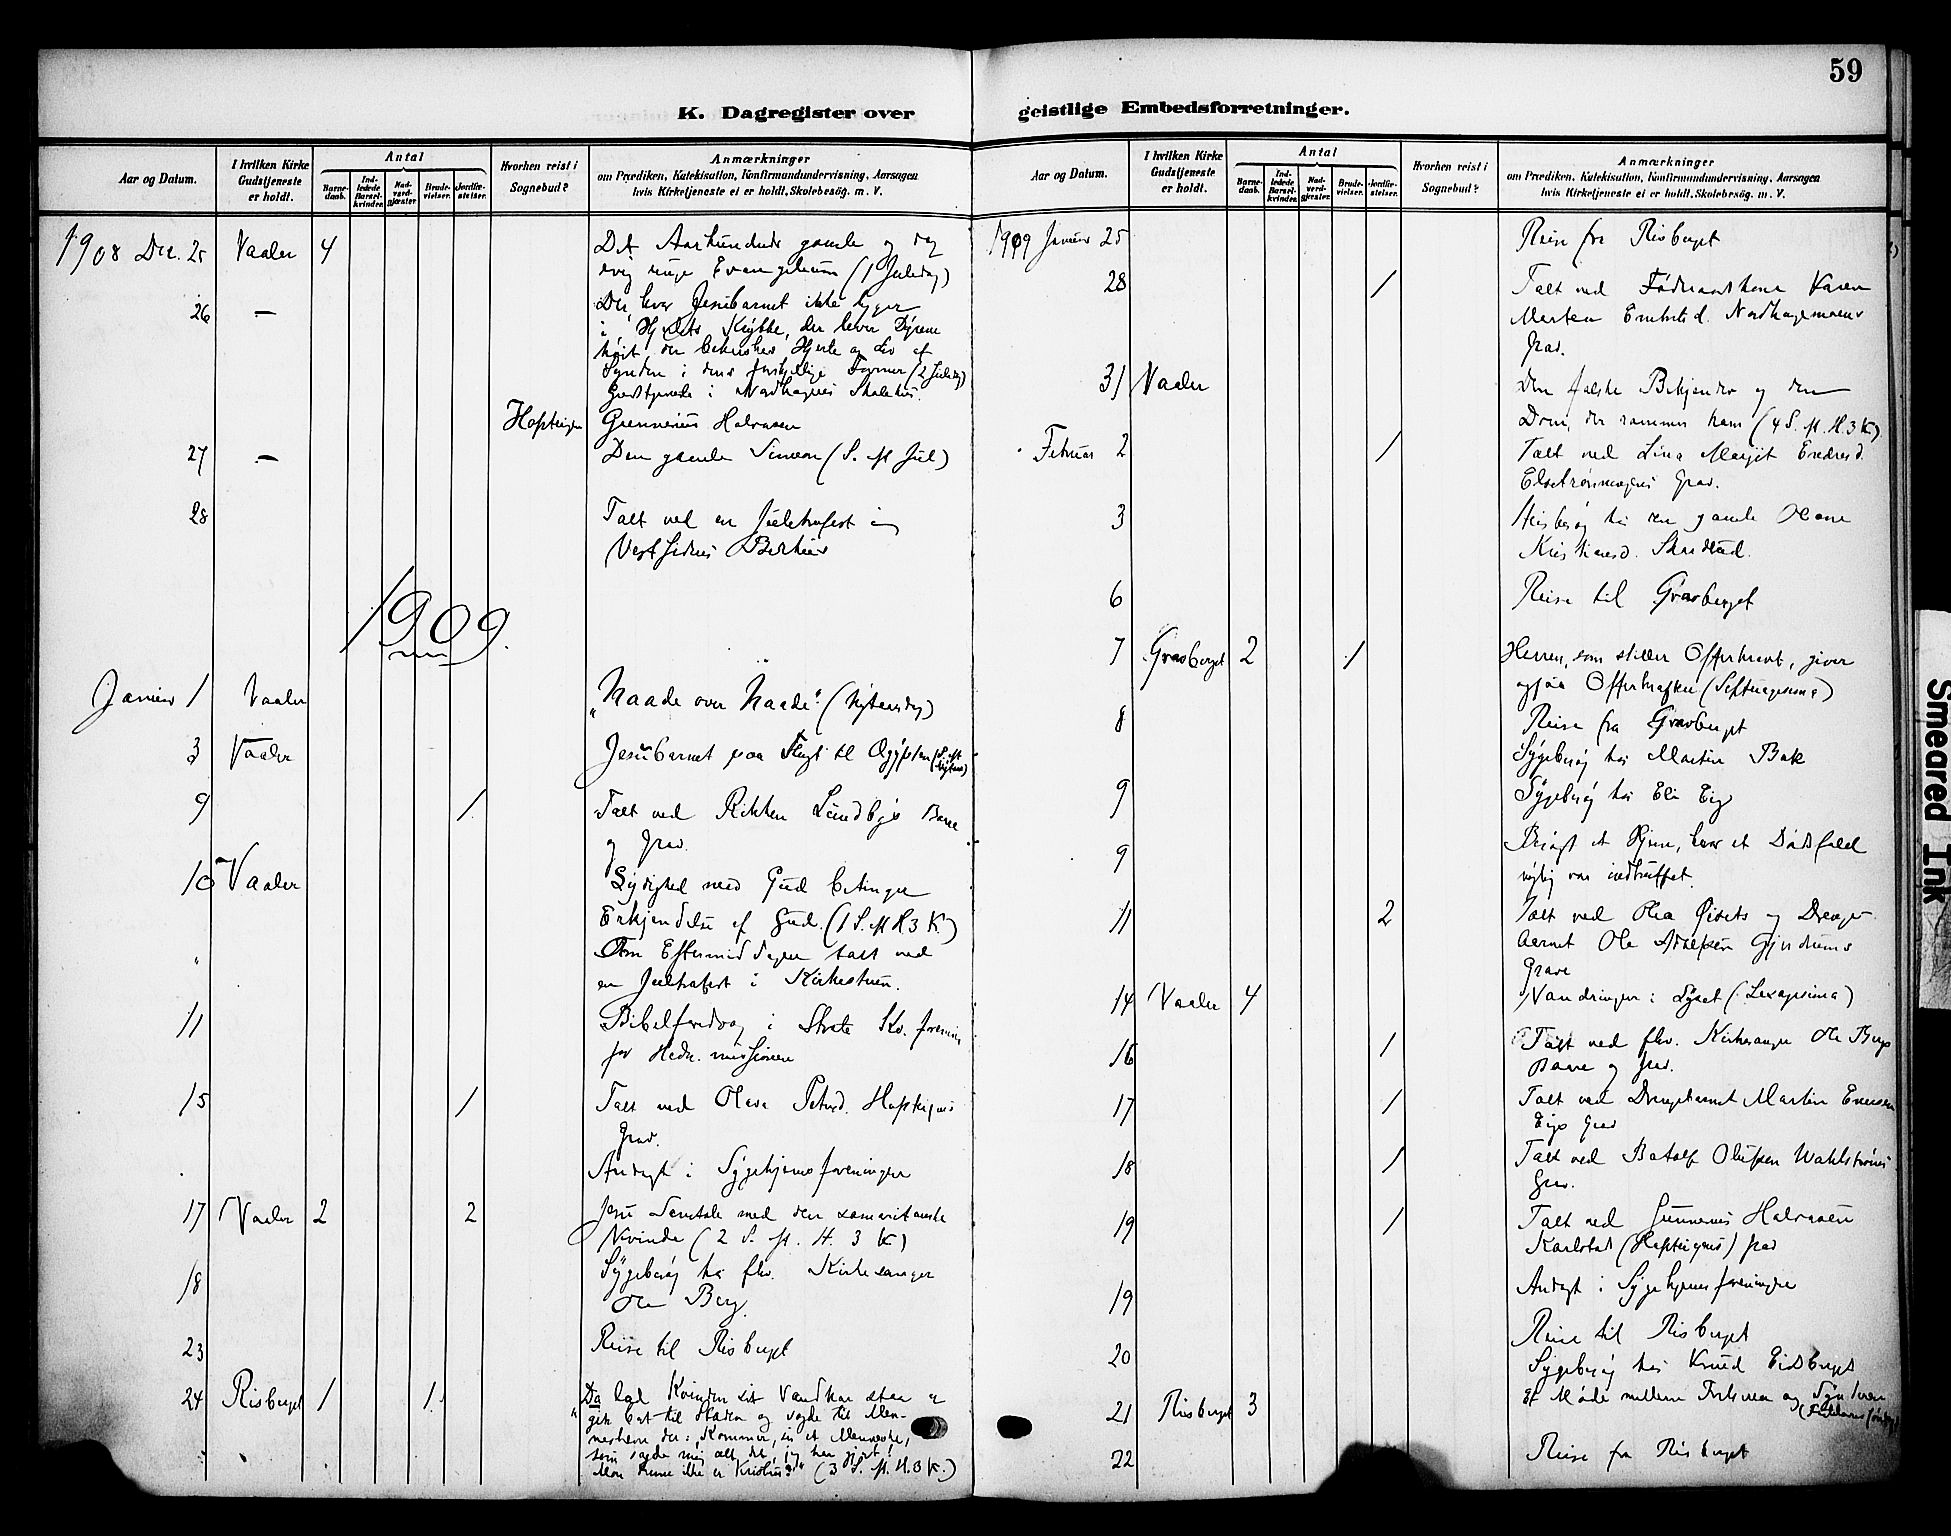 59
K. Dagregister over geistlige Embedsforretninger.
Aar og Datum.
I hvilken Kirke Gudstjeneste er holdt.
Antal
Barne-daab.
Ind-ledede Barsel-kvinder.
Nad-verd-gjæster.
Brude-vielser.
Jordfæ-stelser.
Hvorhen reist i Sognebud?
Anmærkninger
om Prædiken, Katekisation, Konfirmandundervisning, Aarsagen
hvis Kirketjeneste ei er holdt, Skolebesøg. m. V.
1908 Dec. 25 Vaaler 4 Det Aarhundrede gamle og dog
evig unge Evangelium (1 Juledag)
26 — Der, hvor Jesubarnet ikke ligger
i Hjertets Krybbe, der lever Dyrene
høit, der behersker Hjerte og Liv af
Synden i dens forskjellige Former (2 Juledag)
Gudstjeneste i Nordhagens Skolehus.
Gunnerius Halvorsen
27 — Den gamle Simeon (S. ft Jul)
28 Talt ved en Juletrefest i
Vestsidens Bedehus
1909.
Januar 1 Vaaler „Naade over Naade" (Nytaarsdag)
3 Vaaler Jesubarnet paa Flugt til Ægypten (S. ft Nytaar)
9 1 Talt ved Rikken Lundbys Baare
og Grav.
10 Vaaler Lydighed mod Gud betinger
Erkjendelse af Gud. (1 S. ft H 3 K)
" Om Eftermiddagen talt ved
en Juletrefest i Kirkestuen.
11 Bibelforedrag i Kv. forening
for Hedn. missionen
15 1 Talt ved Petersd.
Grav.
Andagt i Sygehjemsforeningen
17 Vaaler 2 2 Jesu Samtale med den samaritanske
Kvinde (2 S. ft. H. 3 K)
18 Sygebesøg hos flv. Kirkesanger
Ole Berg.
23 Reise til Risberget
24 Risberget 1 1 „Da lod Kvinden sit Vandkar staa og
gik bort til Staden og sagde til Men-
neskene der: „Kommer, se et Menneske,
som sagde mig alt det, jeg har gjort!
Mon denne ikke er Kristus?" (3 S. ft. H. 3 K.)
Aar og Datum.
I hvilken Kirke Gudstjeneste er holdt.
Antal
Barne-daab.
Ind-ledede Barsel-kvinder.
Nad-verd-gjæster.
Brude-vielser.
Jordfæ-stelser.
Hvorhen reist i Sognebud?
Anmærkninger
om Prædiken, Katekisation, Konfirmandundervisning, Aarsagen
hvis Kirketjeneste ei er holdt, Skolebesøg. m. V.
1909 Januar 25 Reise fra Risberget
28 1 Talt ved Karen
Grav.
31 Vaaler Den falske Bekjender og den
Dom, der rammer ham (4 S. ft. H. 3 K).
Februar 2 1 Talt ved Lina
Grav.
3 Husbesøg hos den gamle
Kristiansd.
6 Reise til Gravberget
7 Gravberget 2 1 Herren, som stiller Offerkravet, giver
ogsaa Offerkraften (Septuagesima)
8 Reise fra Gravberget
Sygebesøg hos Martin Bak
9 Sygebesøg hos Eli Eig
9 Besøgt et Hjem, hvor et Dødsfald
nylig var indtruffet.
11 2 Talt ved Olea og Drenge-
barnet Ole
Grave
14 Vaaler 4 Vandringen i Lyset (Sexagesima)
16 1 Talt ved flv. Kirkesanger Ole Bergs
Baare og Grav.
17 1 Talt ved Drengebarnet Martin
Eigs Grav
18 1 Talt ved Olufsen
Grav.
19 1 Talt ved Gunnerius Halvorsen
Karlstad Grav
19 Andagt i Sygehjemsforeningen
20 Reise til Risberget
Sygebesøg hos Knud Eidsberget
21 Risberget 3 Et Møde mellem Frelseren og Synderen
22 Reise fra Risberget
Smeared Ink